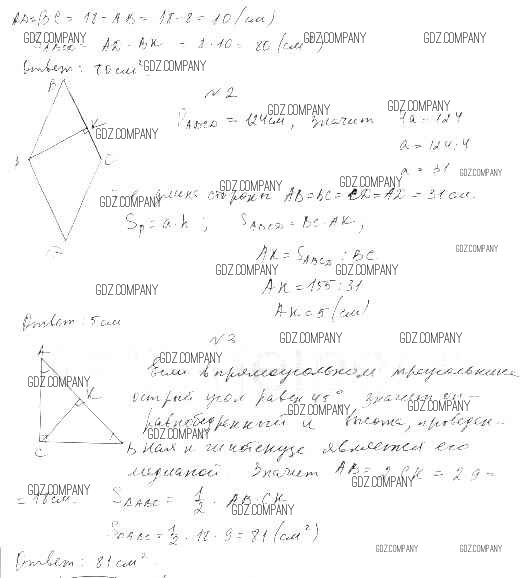 AD=BC = 18-AB = 18-8 = 10 (см)
SABCD = AD · BK = 8·10 = 80 (см²)
GDZ.COMPANY GDZ.COMPANY GDZ.COMPANY
Ответ: 80 см². GDZ.COMPANY
B
№2
GDZ.COMPANY GDZ.COMPANY
PABCD = 124 см, значит 4a = 124
K
GDZ.COMPANY
a = 124:4
C
a = 31
GDZ.COMPANY GDZ.COMPANY GDZ.COMPANY
длина стороны AB=BC=CD=AD = 31 см.
GDZ.COMPANY
Sp = a·h ; SABCD = BC·AK,
D
AK = SABCD : BC
GDZ.COMPANY
GDZ.COMPANY GDZ.COMPANY
GDZ.COMPANY
AK = 155:31
AK = 5 (см)
Ответ: 5 см
№3
GDZ.COMPANY GDZ.COMPANY
A
GDZ.COMPANY
Если в прямоугольном треугольнике
GDZ.COMPANY
K
острый угол равен 45°, значит он -
GDZ.COMPANY GDZ.COMPANY
равнобедренный и высота, проведен-
C
GDZ.COMPANY
B
ная к гипотенузе является его
медианой. Значит AB = 2CK = 2·9 =
GDZ.COMPANY GDZ.COMPANY
= 18 см.
SABC = 1/2 · AB·CK
GDZ.COMPANY
SABC = 1/2 · 18·9 = 81 (см²)
GDZ.COMPANY GDZ.COMPANY
Ответ: 81 см².